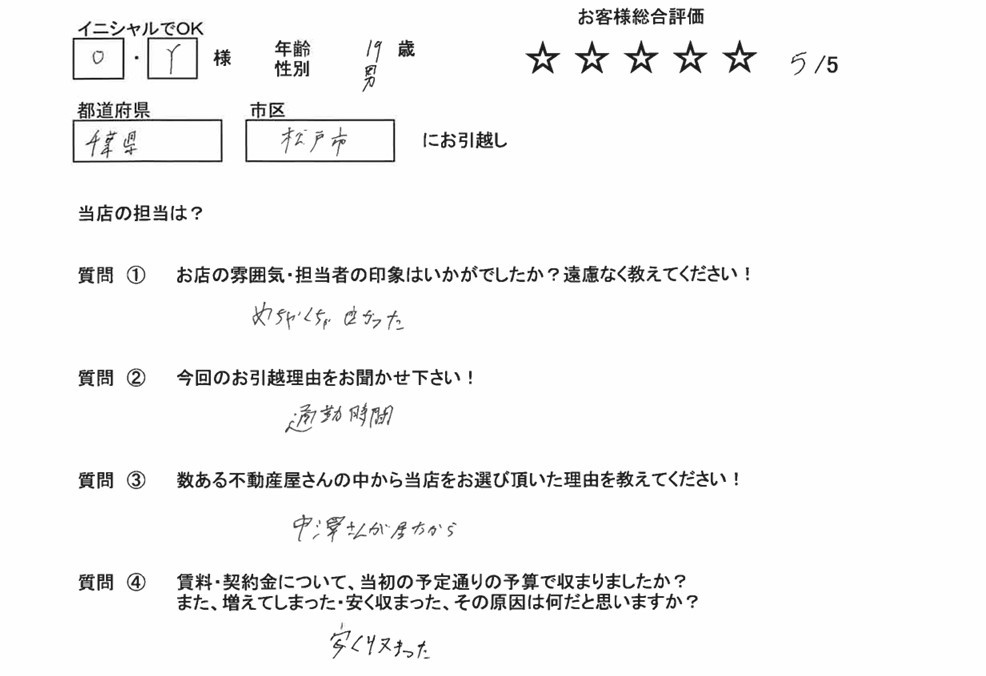 お客様総合評価
イニシャルでOK
O・Y 様 年齢 19 歳
性別 男
☆ ☆ ☆ ☆ ☆ 5 /5
都道府県 市区
千葉県 松戸市 にお引越し
当店の担当は？
質問 ① お店の雰囲気・担当者の印象はいかがでしたか？遠慮なく教えてください！
めちゃくちゃ良かった
質問 ② 今回のお引越理由をお聞かせ下さい！
通勤時間
質問 ③ 数ある不動産屋さんの中から当店をお選び頂いた理由を教えてください！
中澤さんが居たから
質問 ④ 賃料・契約金について、当初の予定通りの予算で収まりましたか？
また、増えてしまった・安く収まった、その原因は何だと思いますか？
安く収まった